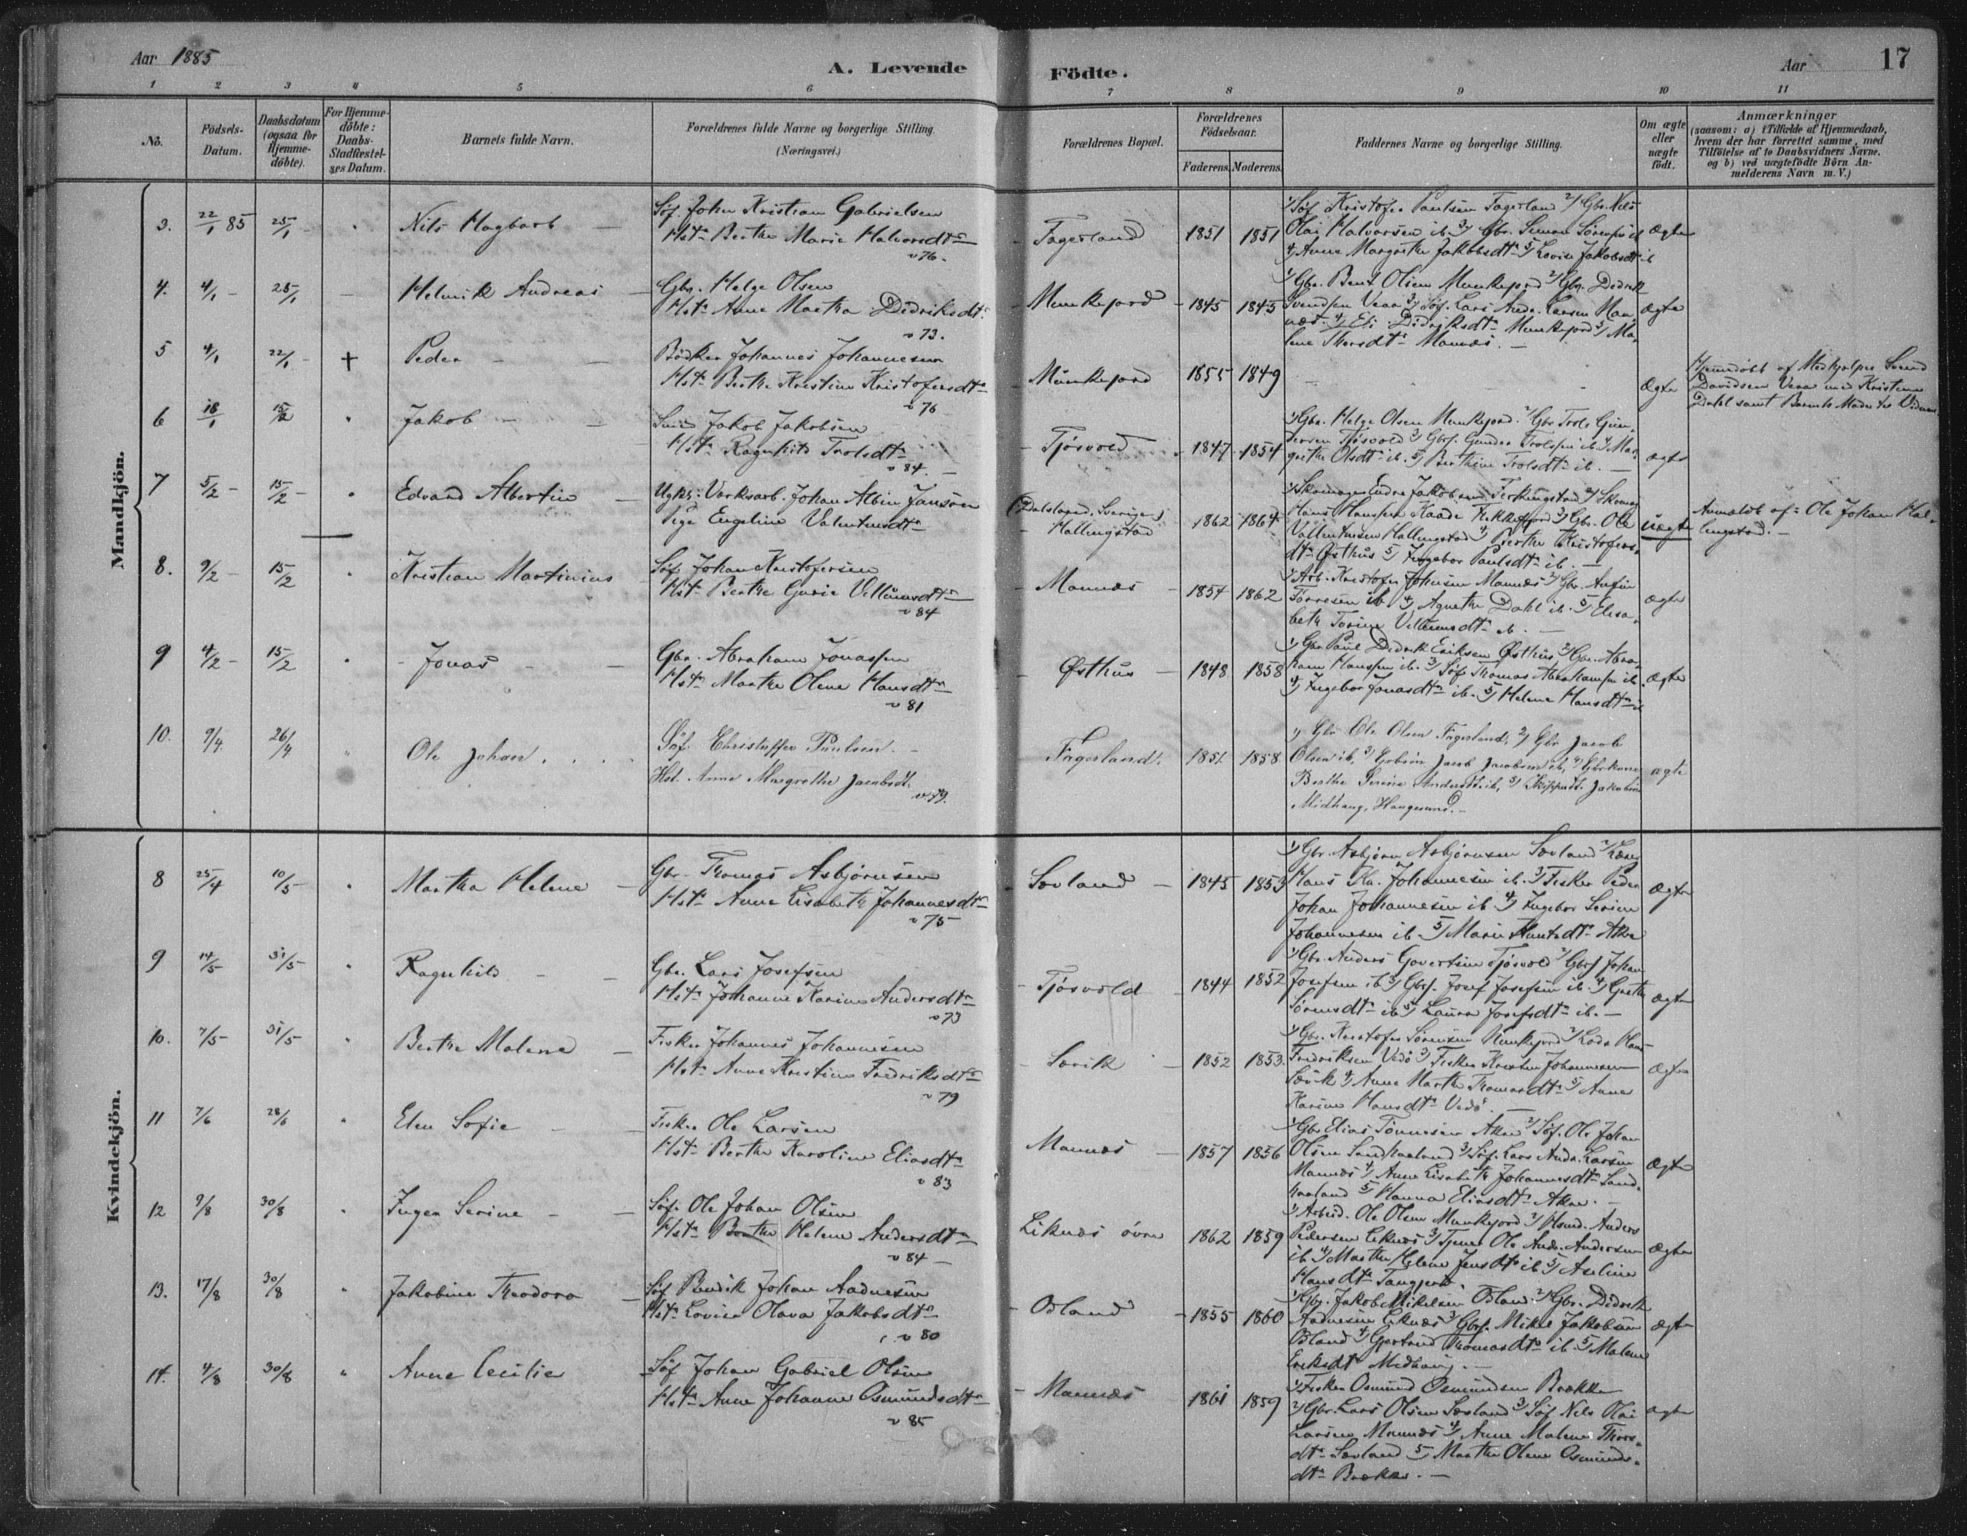 Aar 1885
A. Levende Födte.
Aar
17
1 2 3 4 5 6 7 8 9 10 11
No.
Födsels-Datum.
Daabsdatum (ogsaa for Hjemmedöbte).
For Hjemmedöbte: Daabs-Stadfæstelses Datum.
Barnets fulde Navn.
Forældrenes fulde Navne og borgerlige Stilling.
(Næringsvei.)
Forældrenes Bopæl.
Forældrenes Födselsaar.
Faderens. Moderens.
Faddernes Navne og borgerlige Stilling.
Om ægte eller uægte födt.
Anmærkninger
(saasom: a) i Tilfælde af Hjemmedaab, hvem der har forrettet samme, med Tilföielse af to Daabsvidners Navne. og b) ved uægtefödte Börn Anmelderens Navn m. V.)
Mandkjön.
3. 22/1 85 25/1 - " Nils Hagbart — Søf. John Kristian Gabrielsen
Hst. Berthe Marie Halvorsdtr v 76.
- Fagerland 1851 1851
1/ Søf. Kristofer Paulsen Fagerland 2/ Gbr. Nils
Olai Halvorsen ib. 3/ Gbr. Simon
4/ Anne Margrethe Jakobsdtr 5/ Lovise Jakobsdtr ib
Ægte
4. 4/1 - 25/1 — Helmik Andreas — Gbr. Helge Olsen
Hst. Anne Martha Didriksdtr v 73.
- Munkejord - 1845 1845
1/ Gbr. Bent Olsen Munkejord 2/ Gbr. Didrik
Svendsen Veaa 3/ Søf. Lars Andr. Larsen Man-
næs. 4/ Eli Didriksdtr Munkejord 5/ Ma-
lene Thorsdtr Mannæs. —
ægte
5 4/1 22/1 - + Peder - Bødker Johannes Johannesen
Hst. Berthe Kristine Kristofersdtr v 76
- Munkejord 1855 1849
Ægte
Hjemdøbt af Medhjelper Svend
Davidsen Veaa med Kristine
Dahl samt Barnets Moder til Vidner
6 18/1 15/2 " Jakob - Smed Jakob Jakobsen
Hst. Ragnhild Trolsdtr v 84. —
- Tjøsvold. 1847 1854
1/ Gbr. Helge Olsen Munkejord. 2/ Gbr. Trols Gun-
dersen Tjøsvold 3/ Gbrs. Gunder Trolsen ib. 4/ Mar-
grethe Olsdtr ib. 5/ Berthine Trolsdtr ib. —
ægte
7 5/2 - 15/2 - " Edvard Albertin — Ugkl: Verksarb. Johan Albin Jansson
Pige Engeline Valentinsdtr
(Dalsland, Sverige)
- Hallingstad 1862 1864
1/ Skomager Endre Jakobsen Ferkingstad 2/ Skomag.
Hans Hansen Kaade 3/ Gbr. Ole
Vallentinsen Hallingstad 4/ Berthe Kristofers-
dtr Østhus 5/ Ingebor Paulsdtr ib. —
uægte
Anmeldt af: Ole Johan Hal-
lingstad. —
8. 9/2 - 15/2 " Kristian Martinius Søf. Johan Kristofersen
Hst. Berthe Gurie Villumsdtr v 84
- Mannæs - 1854 1862
1/ Arb. Kristofer Johnsen Mannæs 2/ Gbr. Anfin
Tørresen ib 4/ Agnethe Dahl ib. 5/ Elisa-
beth Torine Villumsdtr ib. —
ægte
9 4/2 - 15/2 " - Jonas - Gbr. Abraham Jonassen
Hst. Marthe Olene Hansdtr v 81
- Østhus - 1848 1858
1/ Gbr. Paul Didrik Eriksen Østhus 2/ Gbr. Abra-
ham Hansen ib. 3/ Søf. Thomas Abrahamsen ib.
4/ Ingebor Jonasdtr ib. 5/ Helene Hansdtr ib
ægte
10. 9/4. 26/4 " Ole Johan. . . . Søf. Christoffer Paulsen. —
Hst. Anne Margrethe Jacobsdt. v. 79.
Fagerland. 1851 1858
1/ Gbr. Ole Olsen Fagerland, 2/ Gbr Jacob
Olsen ib, 3/ Jacob Jacobsen ib, 4/ Gbrkone
Berthe Serine Andersdt. ib, 5/ Jakobine
Midhaug, Haugesund. —
ægte
Kvindekjön.
8 25/4 10/5 " Martha Helene — Gbr. Thomas Asbjørnsen
Hst. Anne Lisabeth Johannesdtr v 75
- Sævland — 1845 1853
1/ Gbr. Asbjørn Asbjørnsen Sævland 2/ Lærer
Hans Kr. Johannesen ib. 3/ Fisker Peder
Johan Johannesen ib. 4/ Ingebor Serine
Johannesen ib. 5/ Marie Knutsdtr Akra
Ægte
9 14/5 31/5 " Ragnhild - — Gbr. Lars Josefsen
Hst. Johanne Karine Andersdtr v 73
- Tjøsvold - 1844 1852
1/ Gbr. Anders Govertsen Tjøsvold 2/ Gbrs. Johan
Josefsen ib 3/ Gbrs. Josef Josefsen ib. 4/ Grethe
Sørensdtr ib 5/ Laura Josefsdtr ib. —
ægte
10. 7/5- 31/5 " Berthe Malene — Fisker Johannes Johannesen
Hst. Anne Kristine Fredriksdtr v 79
- Sævik - 1852 1853.
1/ Gbr. Kristofer Sørensen Munkejord 2/ Lods Hans
Fredriksen Vedø 3/ Fisker Kristen Johannesen
Sævik 4/ Anne Marthe Thomasdtr 5/ Anne
Karine Hansdtr Vedø. —
Ægte
11 7/6 28/6 " Elen Sofie — Fisker Ole Larsen
Hst. Berthe Karoline Eliasdtr v 83
Mannæs — 1857 1856
1/ Gbr. Elias Tønnesen Akra 2/ Søf. Ole Johan
Olsen Sandhaaland 3/ Søf. Lars Andr. Larsen
Mannæs 4/ Anne Lisabeth Johannesdtr Sand-
haaland 5/ Hanna Eliasdtr Akra. —
Ægte
12 9/8 30/8 " Inger Serine - — Søf. Ole Johan Olsen
Hst. Berthe Helene Andersdtr v 84 —
Liknæs øvre 1862 1859
1/ Arbeid. Ole Olsen Munkejord 2/ Anders
Pedersen Liknæs 3/ Tjener Ole Andr. Andersen
ib 4/ Marthe Helene Jensdtr ib 5/ Aseline
Hansdtr Tangjerd.
Ægte
13. 17/8 30/8 " Jakobine Theodora — Søf Bendik Johan Aadnesen
Hst. Lovise Olava Jakobsdtr v 80
- Ødland - 1855 1860
1/ Gbr. Jakob Mikelsen Ødland 2/ Gbr. Didrik
Aadnesen Liknæs 3/ Gbrs. Mikal Jakobsen
Ødland 4/ Gjertrud Thomasdtr ib 5/ Malene
Eriksdtr Midhaug. —
ægte
14. 4/8 30/8 " Anne Cecilie Søf Johan Gabriel Olsen
Hst. Anne Johanne Osmundsdtr v 85
- Mannæs 1861 1859
1/ Fisker Osmund Osmundsen Brække
2/ Gbr. Lars Olsen Sævland 3/ Søf Nils Olai
Larsen Mannæs 4/ Anne Malene Thors-
dtr Sævland 5/ Marthe Olene Osmunds-
dtr Brække. —
ægte